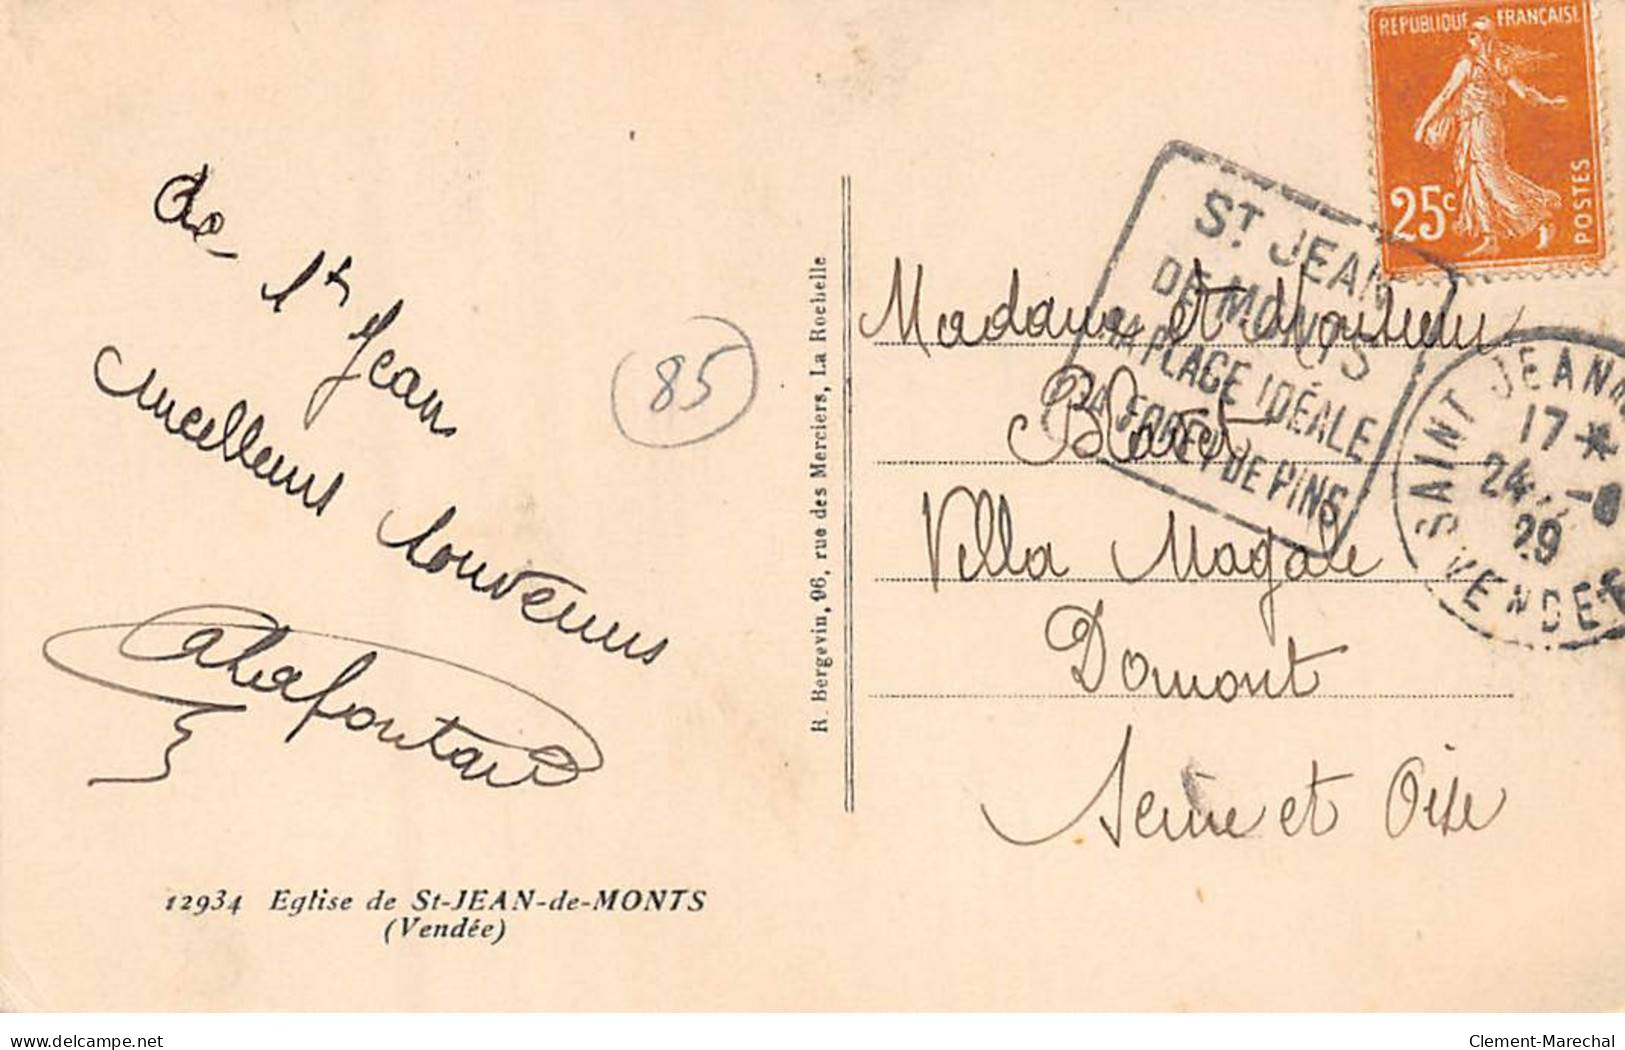 de
St Jean
meilleurs souvenirs
Lafontaine
85
12934 Eglise de St-JEAN-de-MONTS
(Vendée)
R. Bergevin, 96, rue des Merciers, La Rochelle
REPUBLIQUE FRANÇAISE
25c
POSTES
ST JEAN
DE MONTS
SA PLAGE IDÉALE
SA FORET DE PINS
SAINT JEAN
17 *
24 -8
29
VENDEE
Madame et Monsieur
Villa Magali
Domont
Seine et Oise
delcampe.net
Clement-Marechal